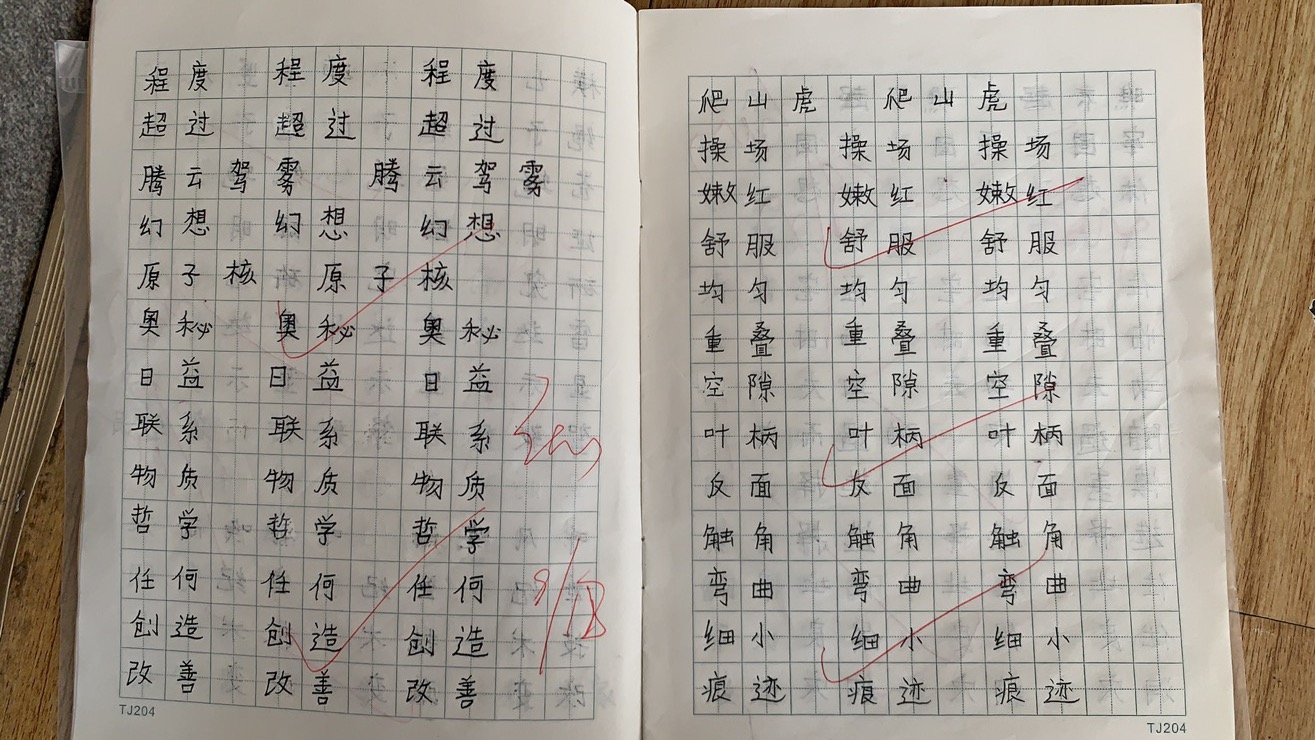 程度 程度 程度
超过 超过 超过
腾云驾雾 腾云驾雾
幻想 幻想 幻想
原子核 原子核
奥秘 奥秘 奥秘
日益 日益 日益
联系 联系 联系
物质 物质 物质
哲学 哲学 哲学
任何 任何 任何
创造 创造 创造
改善 改善 改善
9/18
TJ204
爬山虎 爬山虎
操场 操场 操场
嫩红 嫩红 嫩红
舒服 舒服 舒服
均匀 均匀 均匀
重叠 重叠 重叠
空隙 空隙 空隙
叶柄 叶柄 叶柄
反面 反面 反面
触角 触角 触角
弯曲 弯曲 弯曲
细小 细小 细小
痕迹 痕迹 痕迹
TJ204